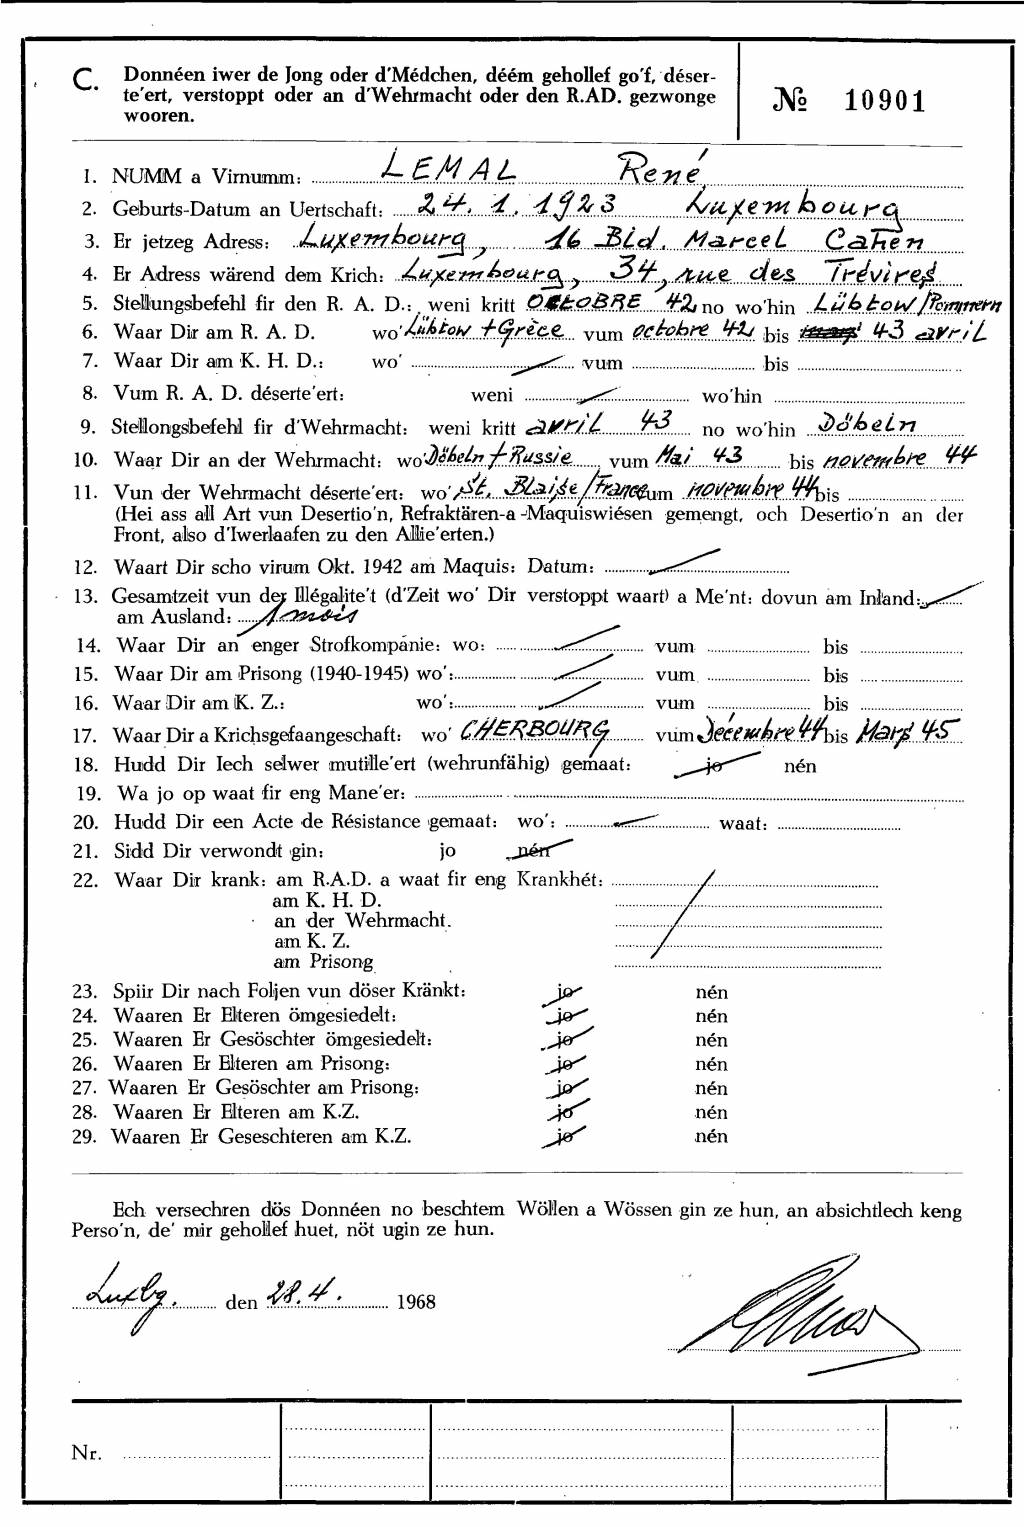 C. Donnéen iwer de Jong oder d'Médchen, déém gehollef go'f, déser-
te'ert, verstoppt oder an d'Wehrmacht oder den R.AD. gezwonge
wooren.
№ 10901
1. NUMM a Virnumm: LEMAL René
2. Geburts-Datum an Uertschaft: 24.1.1923 Luxembourg
3. Er jetzeg Adress: Luxembourg, 16 Bld. Marcel Cahen
4. Er Adress wärend dem Krich: Luxembourg, 34, rue des Trévires
5. Stellungsbefehl fir den R. A. D.: weni kritt OCTOBRE 42 no wo'hin Lübtow/Pommern
6. Waar Dir am R. A. D. wo' Lübtow + Grèce vum octobre 42 bis mars 43 avril
7. Waar Dir am K. H. D.: wo' vum bis
8. Vum R. A. D. déserte'ert: weni wo'hin
9. Stellongsbefehl fir d'Wehrmacht: weni kritt avril 43 no wo'hin Döbeln
10. Waar Dir an der Wehrmacht: wo' Döbeln + Russie vum Mai 43 bis novembre 44
11. Vun der Wehrmacht déserte'ert: wo' St. Blaise/France vum novembre 44 bis
(Hei ass all Art vun Desertio'n, Refraktären-a -Maquiswiésen gemengt, och Desertio'n an der
Front, also d'Iwerlaafen zu den Allie'erten.)
12. Waart Dir scho virum Okt. 1942 am Maquis: Datum:
13. Gesamtzeit vun der Illégalite't (d'Zeit wo' Dir verstoppt waart) a Me'nt: dovun am Inland:
am Ausland: 1 mois
14. Waar Dir an enger Strofkompanie: wo: vum bis
15. Waar Dir am Prisong (1940-1945) wo': vum bis
16. Waar Dir am K. Z.: wo': vum bis
17. Waar Dir a Krichsgefaangeschaft: wo' CHERBOURG vum Décembre 44 bis Mars 45
18. Hudd Dir Iech selwer mutille'ert (wehrunfähig) gemaat: jo nén
19. Wa jo op waat fir eng Mane'er:
20. Hudd Dir een Acte de Résistance gemaat: wo': waat:
21. Sidd Dir verwondt gin: jo nén
22. Waar Dir krank: am R.A.D. a waat fir eng Krankhét:
am K. H. D.
an der Wehrmacht.
am K. Z.
am Prisong
23. Spiir Dir nach Foljen vun döser Kränkt: jo nén
24. Waaren Er Elteren ömgesiedelt: jo nén
25. Waaren Er Gesöschter ömgesiedelt: jo nén
26. Waaren Er Elteren am Prisong: jo nén
27. Waaren Er Gesöschter am Prisong: jo nén
28. Waaren Er Elteren am K.Z. jo nén
29. Waaren Er Geseschteren am K.Z. jo nén
Ech versechren dös Donnéen no beschtem Wöllen a Wössen gin ze hun, an absichtlech keng
Perso'n, de' mir gehollef huet, nöt ugin ze hun.
Luxbg. den 28.4. 1968
Nr.